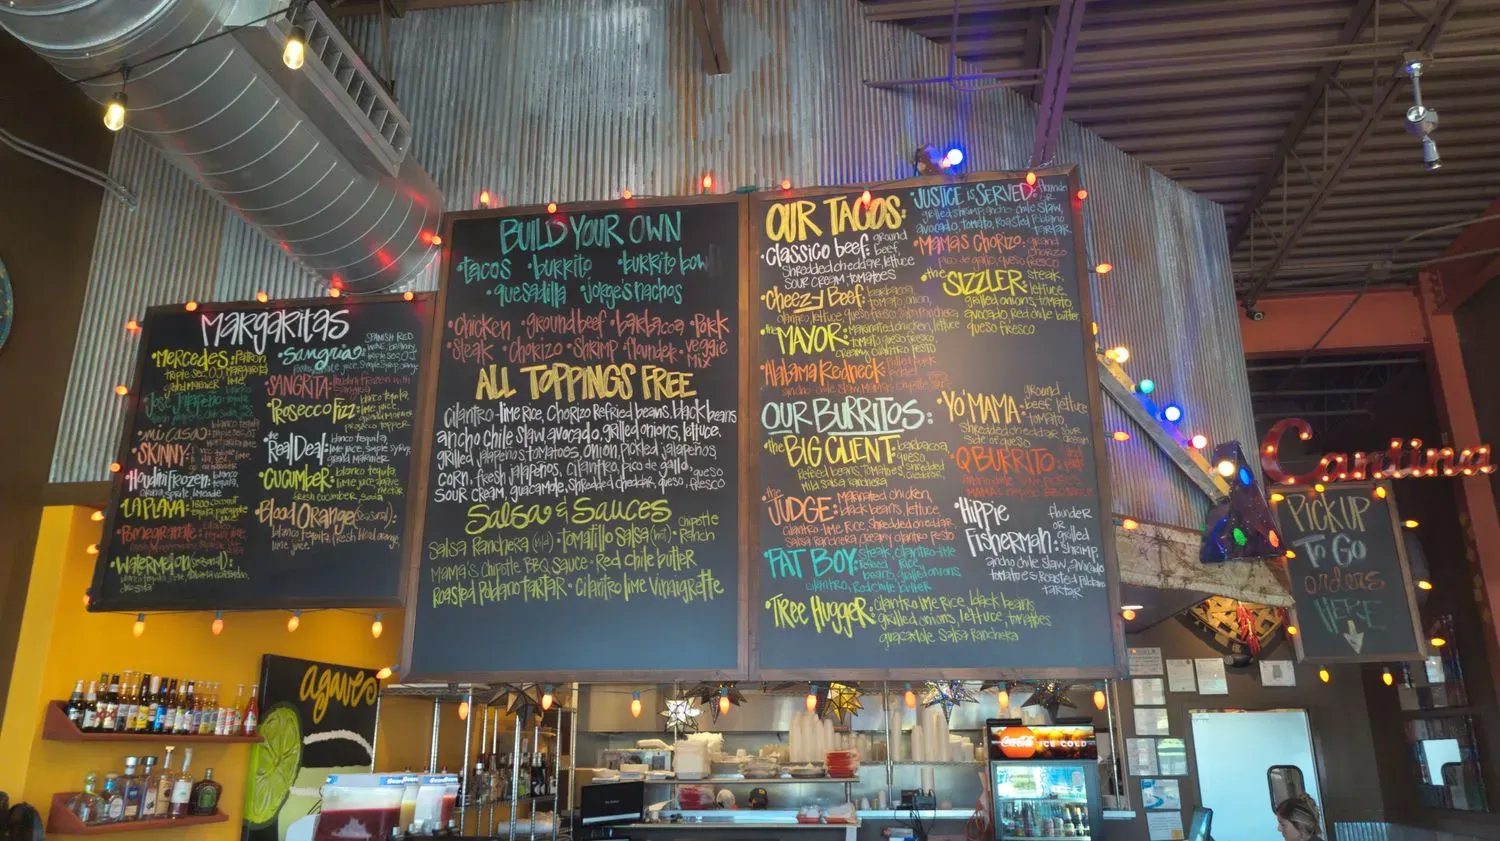 MARGARITAS
MERCEDES: Patron
triple sec, OJ, Margarita
grand marnier lime
Jose Jalapeño:
mi CASA:
SKINNY:
Houdini Frozen:
sprite limeade
LA PLAYA: 1800 coconut
Pomegranate:
WATERMELON
Sangria: SPANISH RED
WINE, brandy,
triple sec, OJ,
SANGRITA: Houdini frozen with
sangria
PROSECCO FIZZ: blanco tequila,
lime juice,
prosecco topper
the REAL DEAL: blanco tequila,
lime juice, simple syrup,
grand marnier
CUCUMBER: blanco tequila,
fresh cucumber, soda
Blood ORANGE (seasonal):
blanco tequila, fresh blood orange,
lime juice
BUILD YOUR OWN
•tacos •burrito •burrito bowl
•quesadilla •Jorge's nachos
•Chicken •ground beef •barbacoa •Pork
•Steak •Chorizo •Shrimp •flounder •veggie
Mix
ALL TOPPINGS FREE
Cilantro-lime Rice, Chorizo Refried beans, black beans
ancho chile slaw, avocado, grilled onions, lettuce,
grilled jalapeños, tomatoes, onion, pickled jalapeños
corn, fresh jalapeños, cilantro, pico de gallo,
sour cream, guacamole, shredded cheddar, queso, queso fresco
Salsa & Sauces
Salsa Ranchera (mild) • tomatillo Salsa (hot) • Chipotle Ranch
Mama's Chipotle BBQ Sauce • Red chile butter
Roasted Poblano tartar • Cilantro lime Vinaigrette
OUR TACOS:
•Classico beef: ground beef,
Shredded cheddar, lettuce
sour cream, tomatoes
•Cheezy Beef: barbacoa,
tomato, onion,
cilantro, lettuce, queso fresco, salsa Ranchera
•the MAYOR: Marinated chicken, lettuce
tomato, queso fresco,
creamy cilantro pesto
Alabama Redneck: pulled pork,
ancho chile slaw, Mama's chipotle
•JUSTICE is SERVED: flounder
or
grilled shrimp, ancho chile slaw,
avocado, tomato, Roasted Poblano
tartar
•MAMA'S CHORIZO: ground
chorizo
pico de gallo, queso fresco
•the SIZZLER: steak,
lettuce,
grilled onions, tomato,
avocado, red chile butter
queso fresco
OUR BURRITOS:
•the BIG CLIENT: barbacoa,
queso
Refried beans, tomatoes, shredded cheddar,
mild salsa ranchera
the JUDGE: Marinated chicken,
black beans, lettuce
cilantro-lime rice, shredded cheddar,
salsa ranchera, creamy cilantro pesto
FAT BOY: steak, cilantro-lime
rice, refried
beans, grilled onions,
cilantro, Red chile butter
•TREE HUGGER: cilantro lime Rice, black beans
grilled onions, lettuce, tomatoes
guacamole, salsa Ranchera
YO MAMA: ground
beef, lettuce
tomato
shredded cheddar, sour cream
side of queso
Q BURRITO:
•Hippie Fisherman: flounder
or
grilled
shrimp,
ancho chile slaw, avocado
tomatoes, Roasted Poblano
tartar
Cantina
PICK UP
To Go
orders
HERE
agaves
Coca-Cola ICE COLD